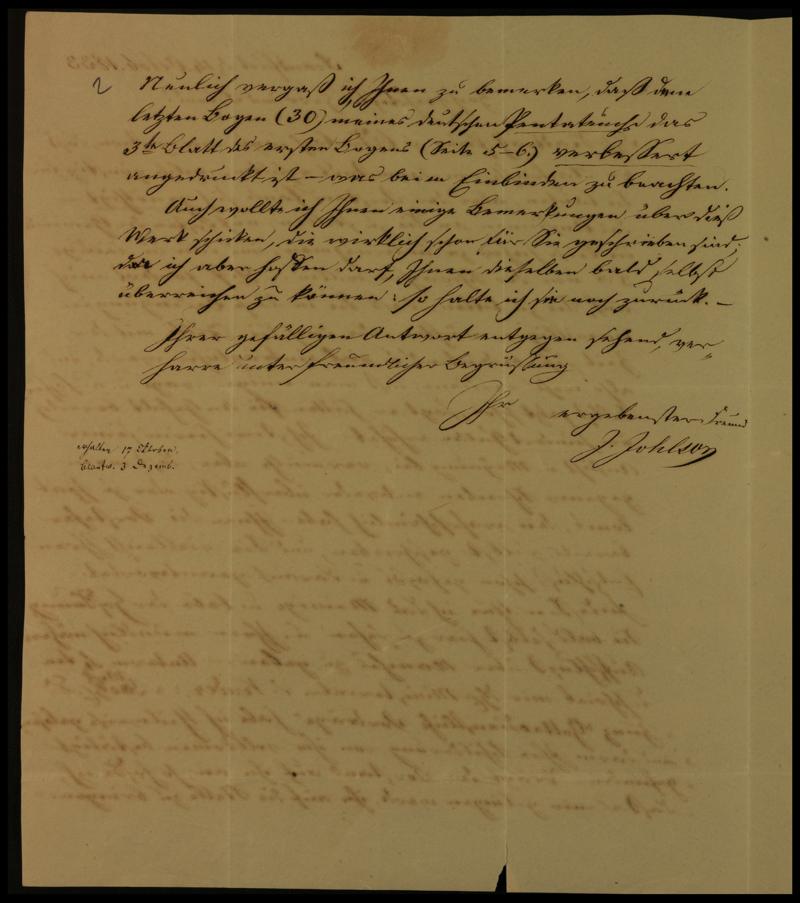 2 Neulich vergaß ich Ihnen zu bemerken, daß dem
letzten Bogen (30) meines deutschen Pentateuchs das
3te Blatt des ersten Bogens (Seite 5–6.) verbessert
angedruckt ist – was beim Einbinden zu beachten.
Auch wollte ich Ihnen einige Bemerkungen über dieß
Werk schicken, die wirklich schon für Sie geschrieben sind;
da ich aber hoffen darf, Ihnen dieselben bald selbst
überreichen zu können: so halte ich sie noch zurück. –
Ihrer gefälligen Antwort entgegen sehend, ver=
harre unter freundlicher Begrüssung
Ihr ergebenster Freund
J. Johlson
erhalten 17 Oktober.
beantw. 3 Dezemb.